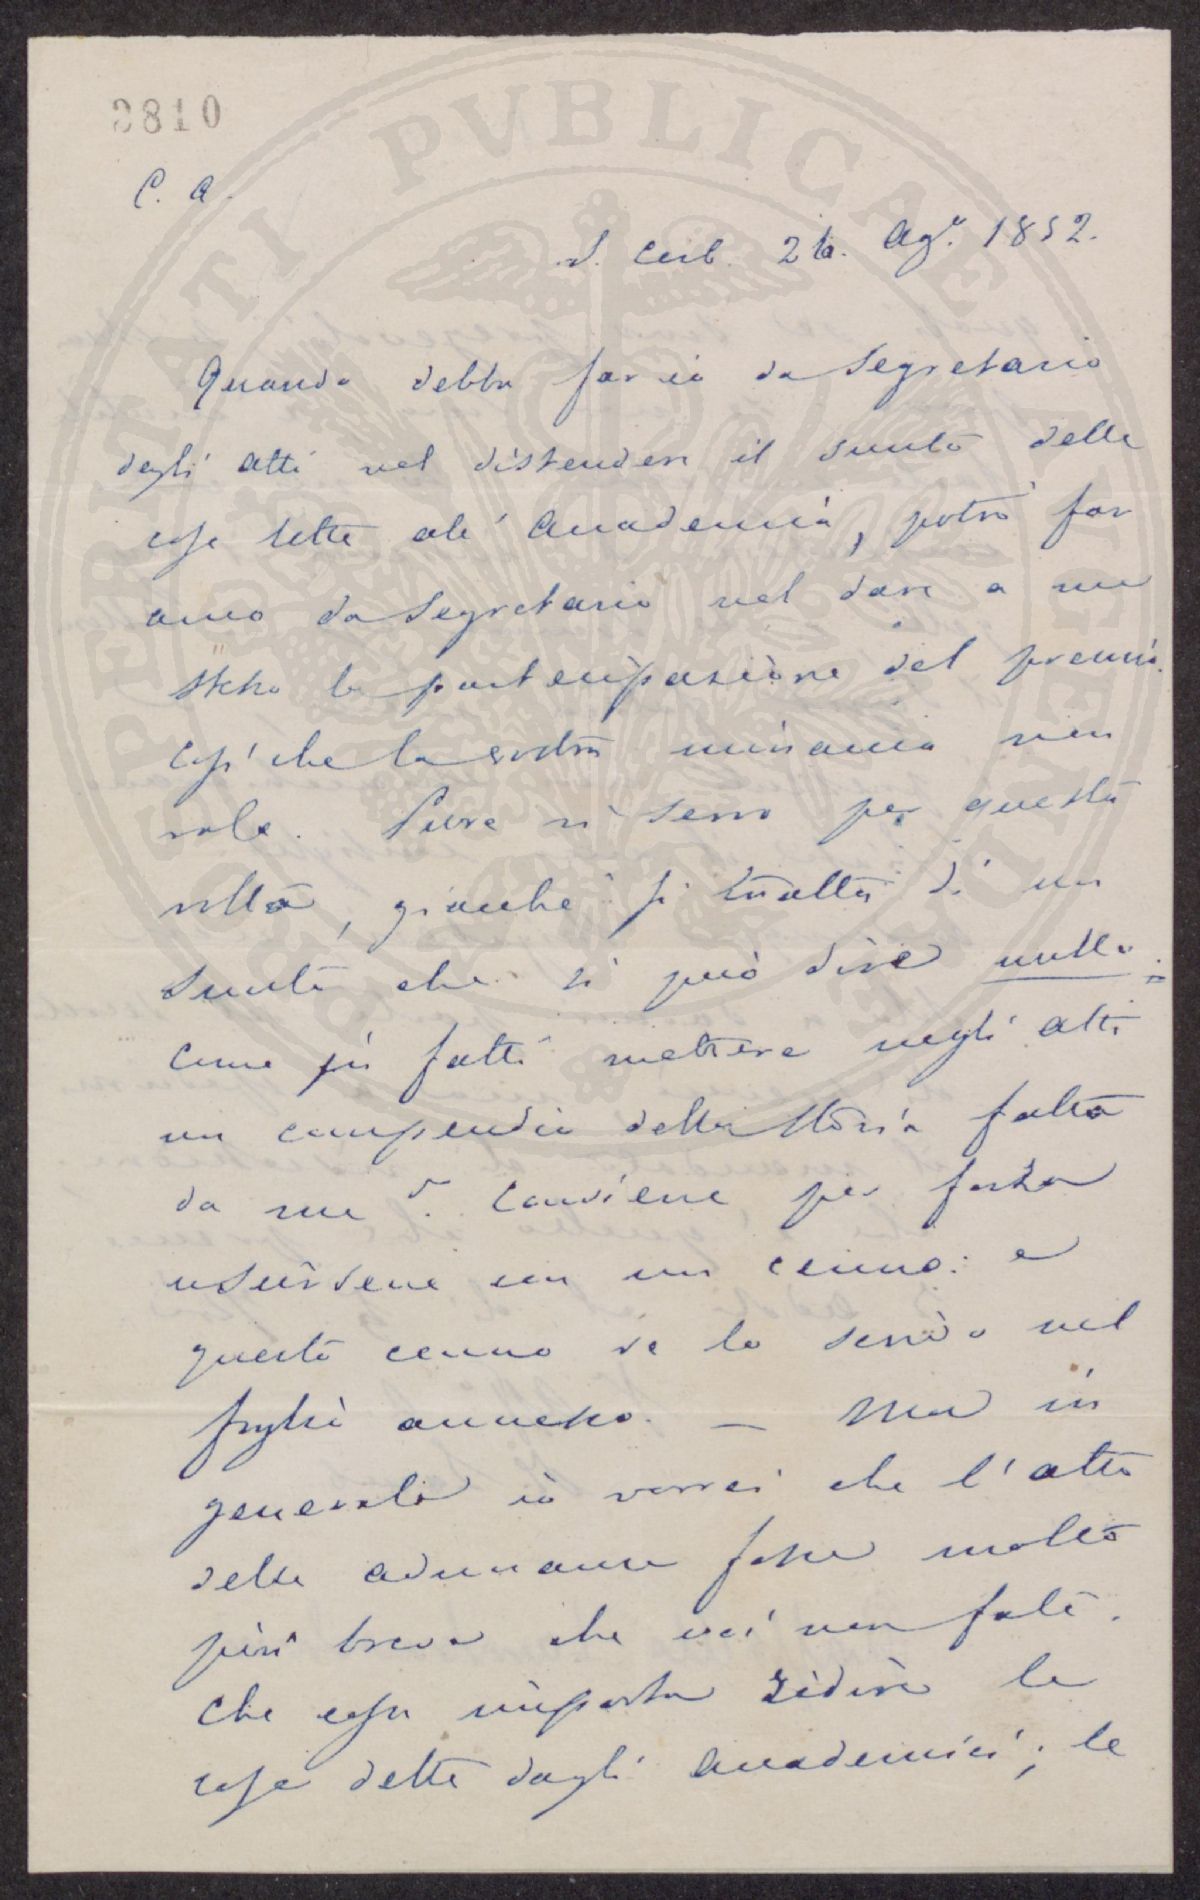 3810
PROSPERITATI PVBLICAE AVGENDAE
C. A.
S. Cerb. 26. Ag.º 1852.
Quando debba far io da Segretario
degli atti nel distendere il sunto delle
cose lette all' Accademia, potrò far
anco da Segretario nel dare a me
stesso la partecipazione del premio.
così che la vostra minaccia non
vale. Pure vi servo per questa
volta, giacché si tratta di un
sunto che si può dire nullo.
Come si fatti mettere negli atti
un compendio della storia fatta
da me? Conviene per forza
uscirsene con un cenno: e
questo cenno ve lo scrivo nel
foglio annesso. — Ma in
generale io vorrei che l'atto
delle adunanze fosse molto
più breve che voi non fate.
Che cosa importa ridire le
cose dette dagli Accademici; le